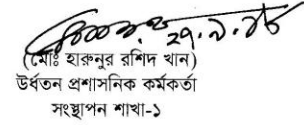 ২৭.৯.১৮
(মোঃ হারুনুর রশিদ খান)
উর্ধতন প্রশাসনিক কর্মকর্তা
সংস্থাপন শাখা-১